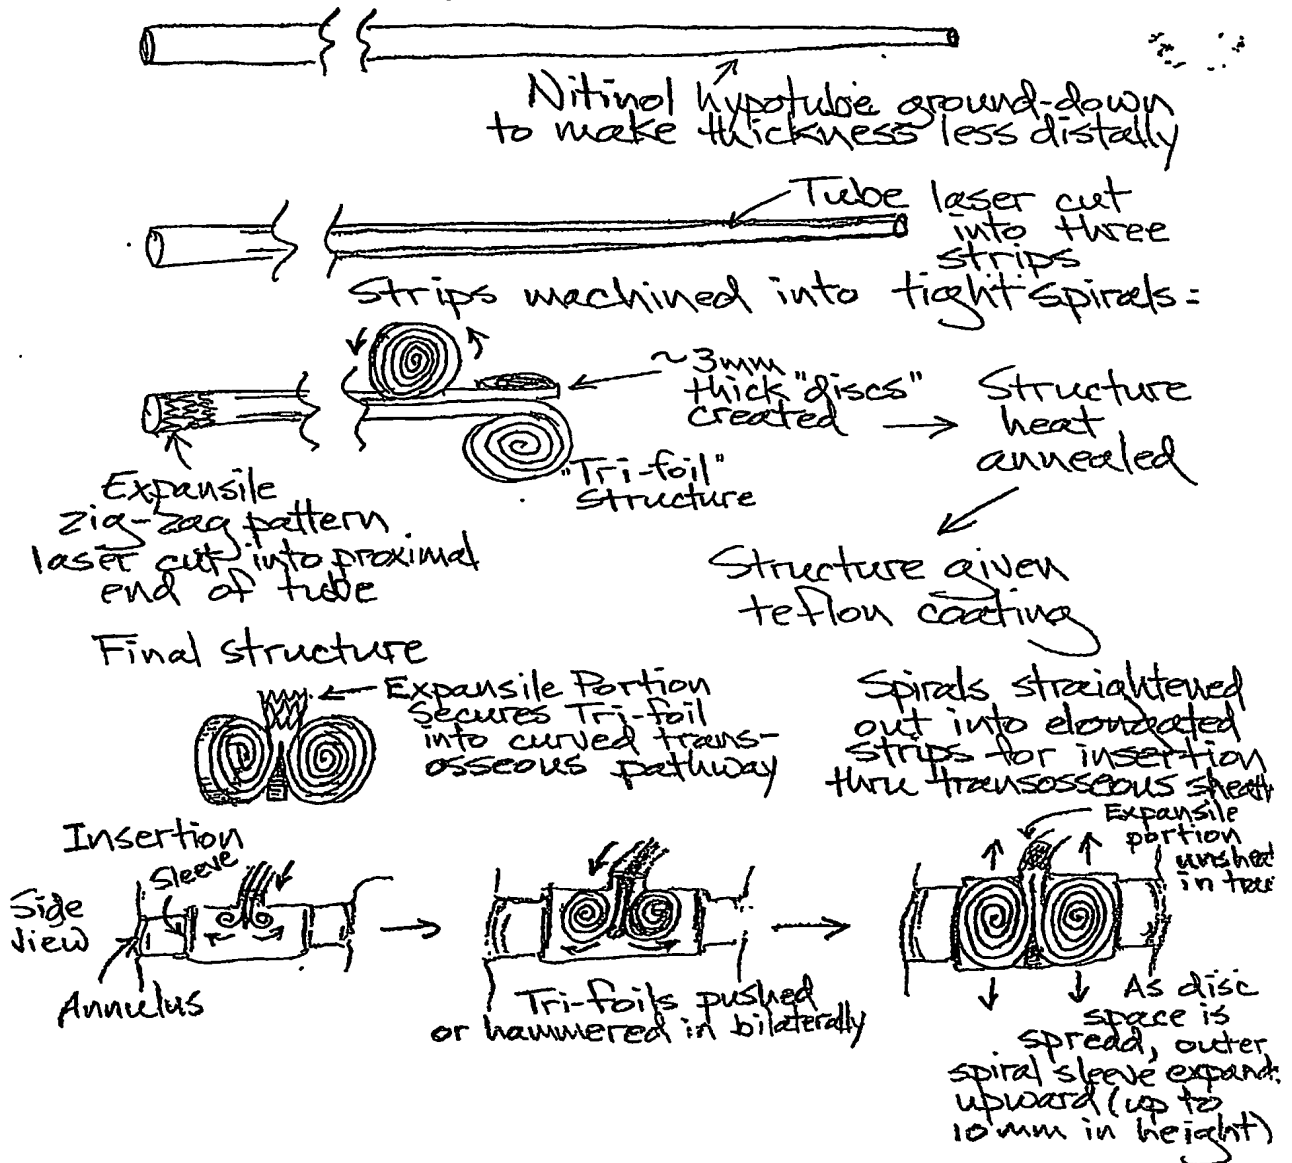 Nitinol hypotube ground-down
to make thickness less distally
Tube laser cut
into three
strips
Strips machined into tight spirals:
~3mm
thick "discs"
created
Structure
heat
annealed
"Tri-foil"
structure
Expansile
zig-zag pattern
laser cut into proximal
end of tube
Structure given
teflon coating
Final structure
Expansile Portion
secures Tri-foil
into curved trans-
osseous pathway
Spirals straightened
out into elongated
strips for insertion
thru transosseous sheath
Insertion
Sleeve
Side
view
Annulus
Tri-foils pushed
or hammered in bilaterally
Expansile
portion
in
As disc
space is
spread, outer
spiral sleeve expand
upward (up to
10 mm in height)